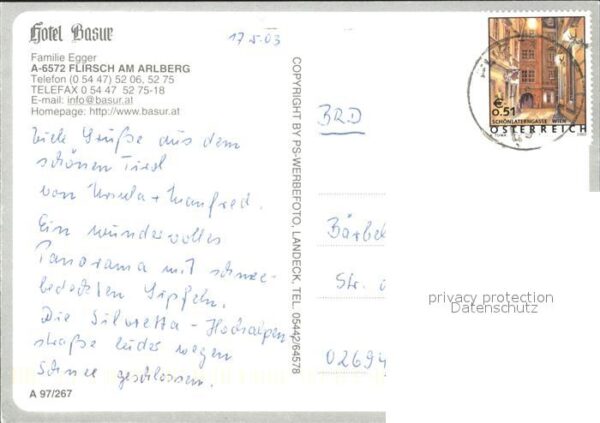 Hotel Basur
Familie Egger
A-6572 FLIRSCH AM ARLBERG
Telefon (0 54 47) 52 06, 52 75
TELEFAX 0 54 47 52 75-18
E-mail: info@basur.at
Homepage: http://www.basur.at
17.5.03
Viele Grüße aus dem
schönen Tirol
von Ursula + Manfred.
Ein wundervolles
Panorama mit schnee-
bedeckten Gipfeln.
Die Silvretta - Hochalpen-
straße leider wegen
Schnee geschlossen.
A 97/267
COPYRIGHT BY PS-WERBEFOTO, LANDECK, TEL. 05442/64578
€
0.51
SCHÖNLATERNGASSE WIEN
ÖSTERREICH
BRD
Bärbel
Str.
02694
privacy protection
Datenschutz